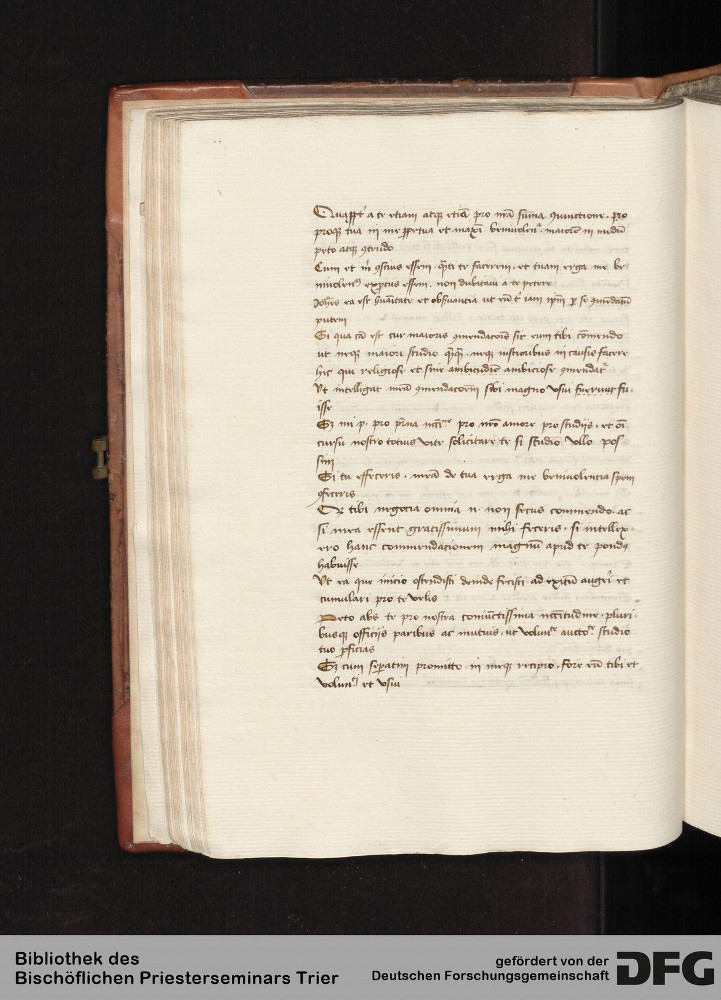 Quāpptˀ a te etiam atqꝫ etiā pro nr̄a sūma ꝯiunctione . pro
proqꝫ tua in me ꝑpetua et maxīa benivolenᵃ . maiorē in modū
peto atqꝫ ꝯtendo
Cum et m ꝯscius essem . q̄nti te facerem . et tuam erga me be
nivolen expertus essem . non dubitavi a te petere
ea est hūanitate et obsuantia ut eū iam ip̄m ꝑ se ꝯmēdatū
putem
Si qua cā est cur maioris ꝯmendacōis sit eum tibi cōmendo
ut neqꝫ maiori studio neqꝫ iustioribus in causis facere
hic qui religiose et sine ambitudine ambiciose ꝯmendatˀ
Ut intelligat meā ꝯmendacōem sibi magno usui fuerunt fu-
isse
Sꝫ mi p. pro pro nr̄o amore pro studijs . et oī
cursu nostro totius vite solicitare te si studio ullo pos
sim
Si tu effeceris . meā de tua erga me benivolentia spem
ꝯfeceris
tibi negocia omnia n. non secus commendo . ac
si mea essent gratissimum mihi feceris . si intellex-
ero hanc commendacionem magnū apud te pondus
habuisse
Ut ea que inicio ostendisti deinde fecisti ad exitū augeri et
cumulari pro te velis
Peto abs te pro nostra coniūctissima nc̄citudine . pluri-
busqꝫ officijs paribus ac mutuis . ut volunᵗᵉ aucto studio
tuo ꝑficias
Sꝫ cum seꝑatim promitto . in meqꝫ recipio . fore eū tibi et
volunᵗⁱ et usui
Bibliothek des
Bischöflichen Priesterseminars Trier
gefördert von der
Deutschen Forschungsgemeinschaft
DFG